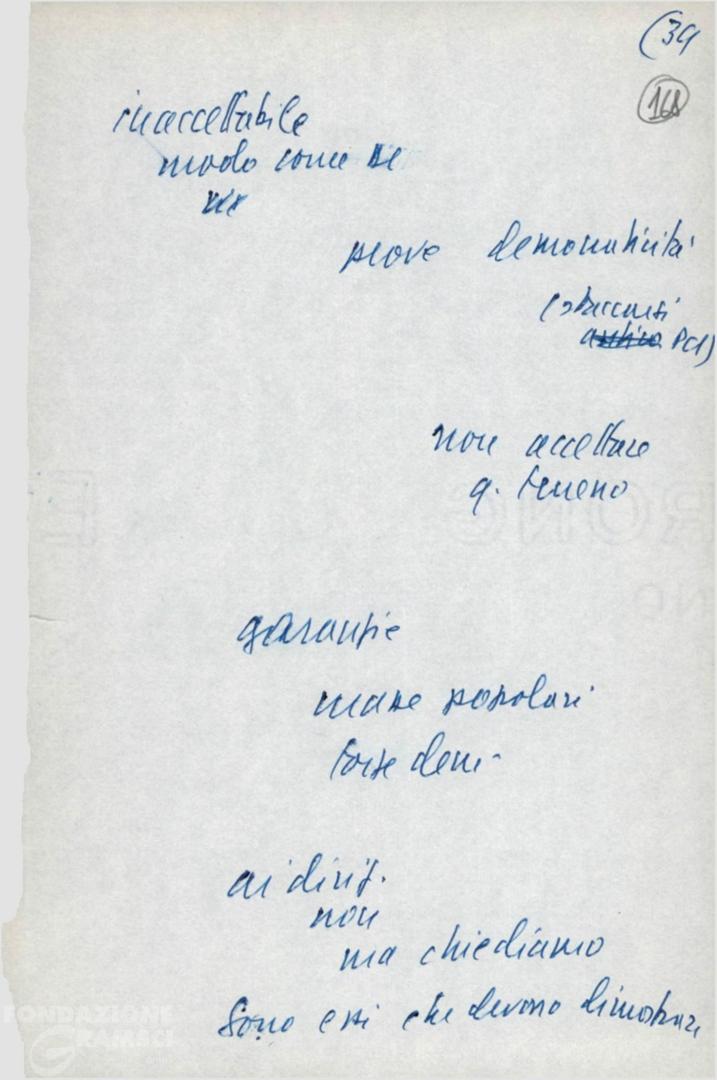 (39
168
inaccettabile
modo come se
prove democraticità
(staccarsi
PCI)
non accettare
q. terreno
garanzie
masse popolari
forze dem.
ai dirig.
non
ma chiediamo
Sono essi che devono dimostrare
FONDAZIONE
GRAMSCI